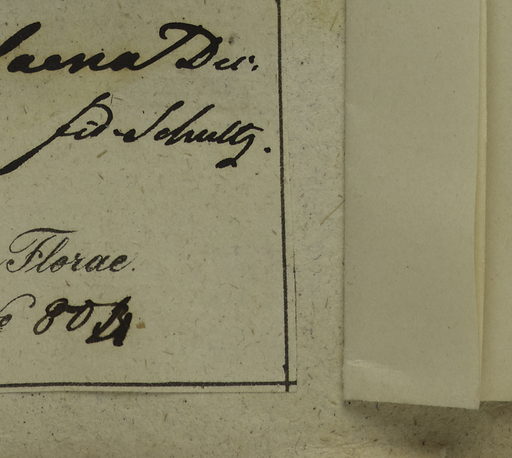 laena Dec.
fid. Schultz.
Florae.
80